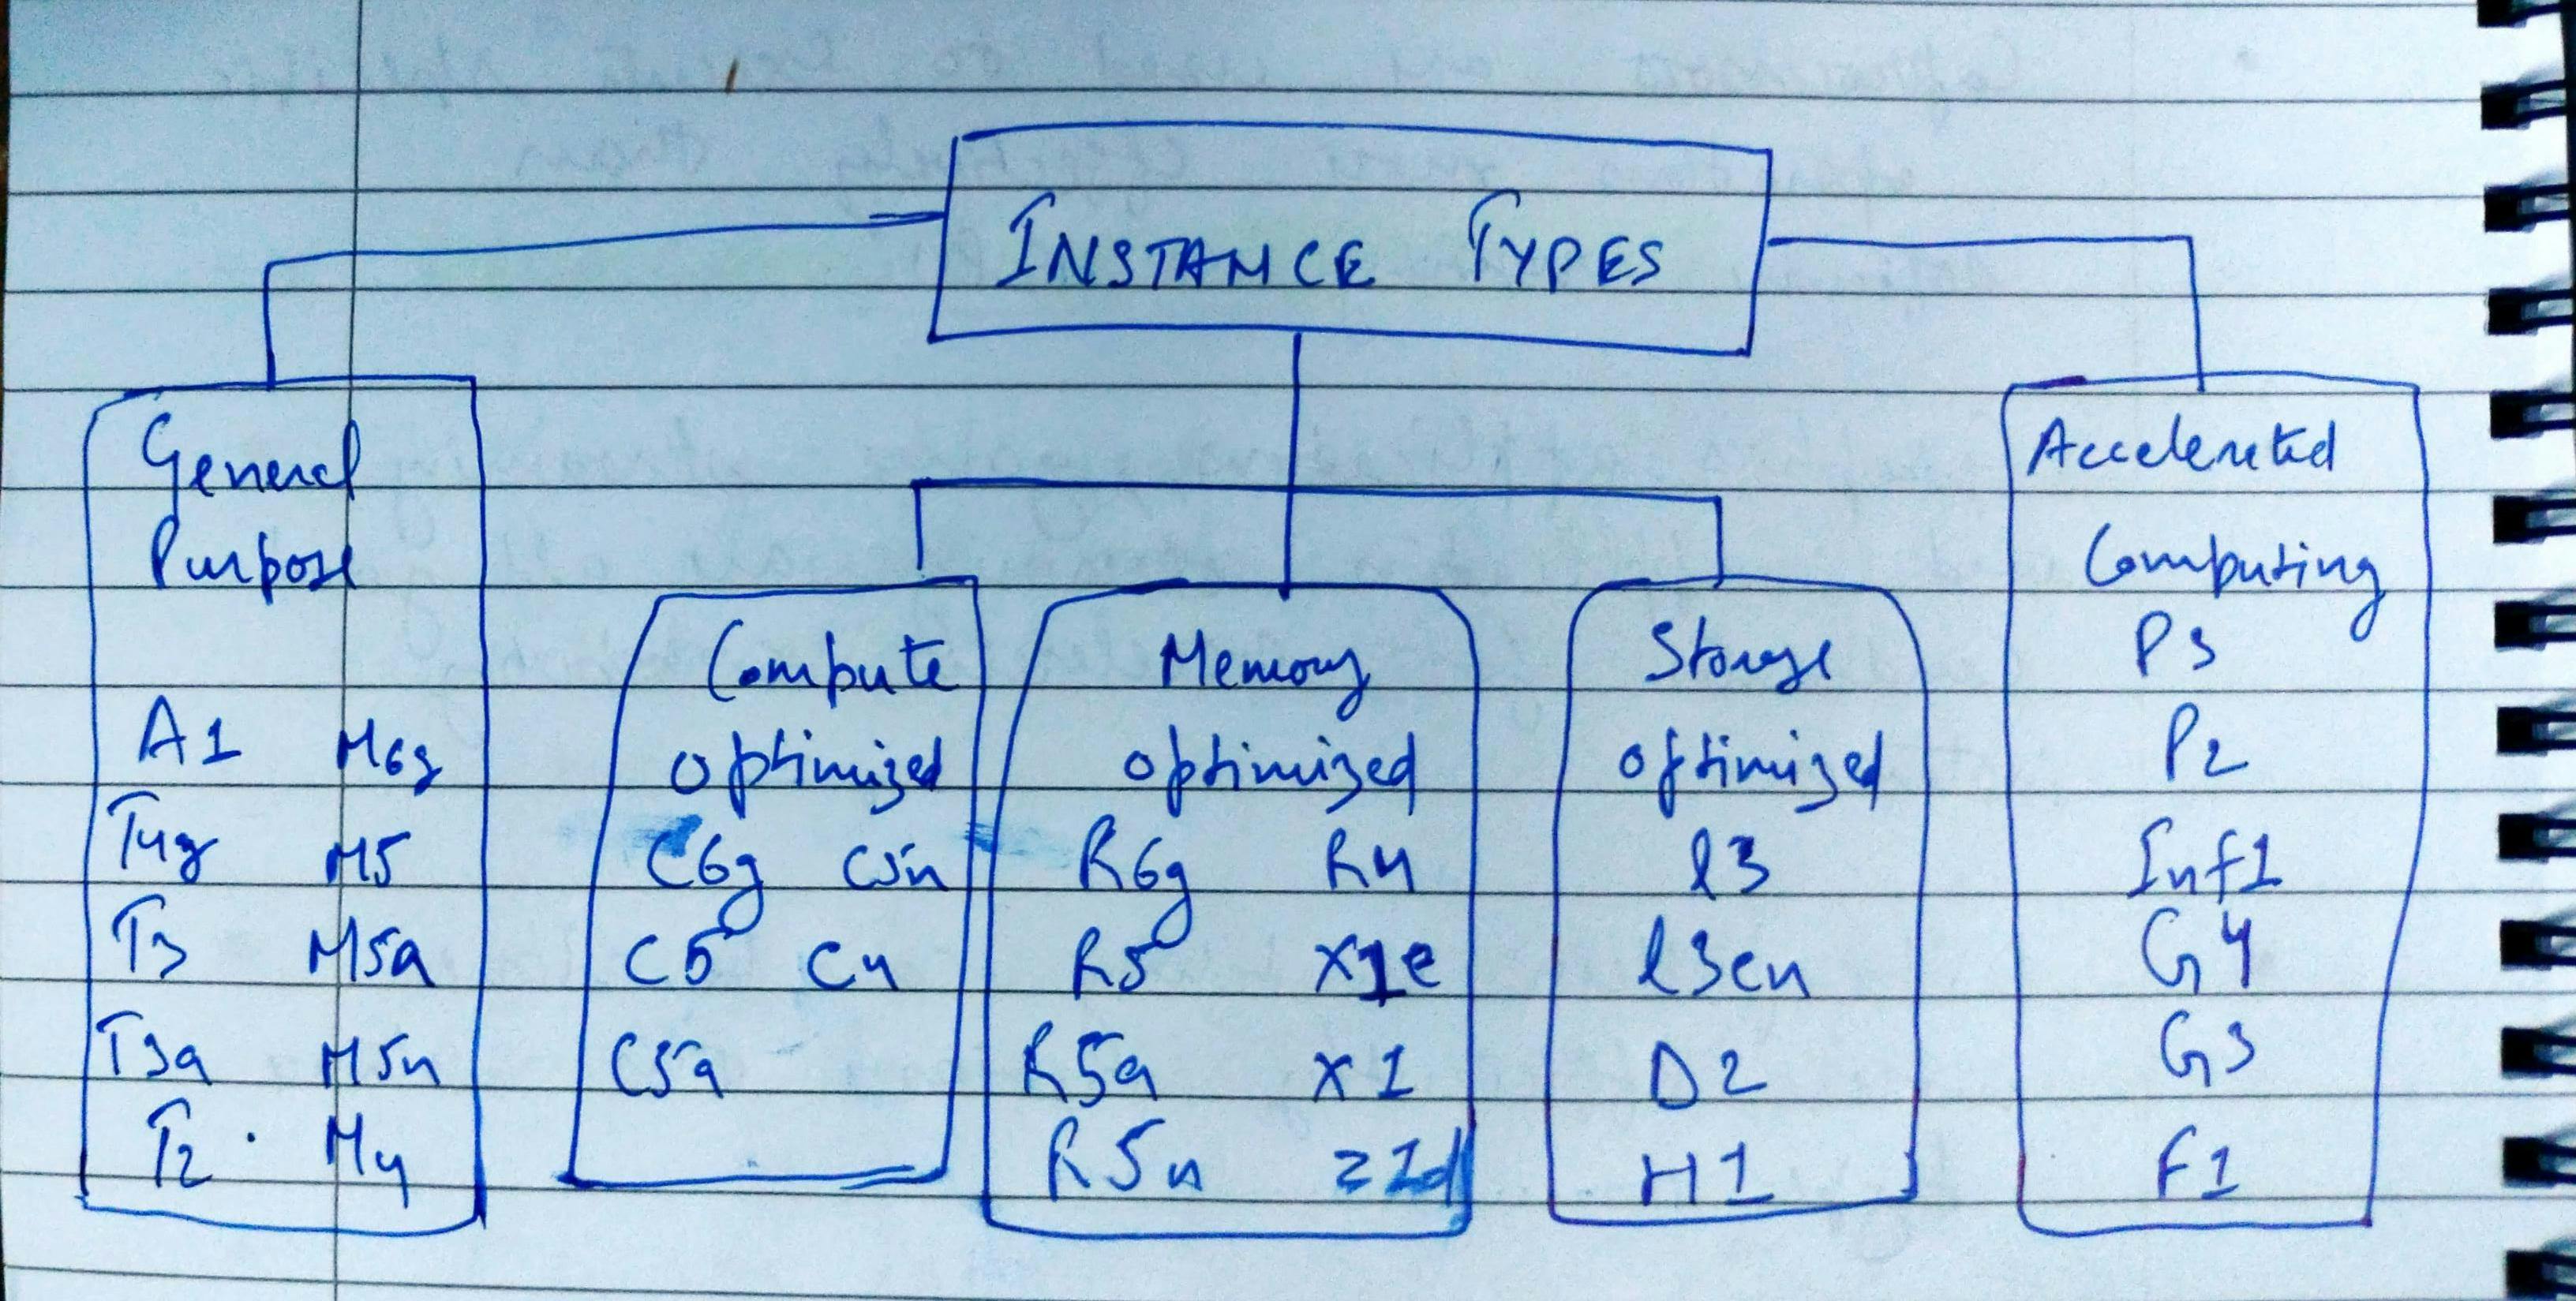 INSTANCE TYPES
General
Purpose
A1 M6g
T4g M5
T3 M5a
T3a M5n
T2 M4
Compute
optimized
C6g C5n
C5 C4
C5a
Memory
optimized
R6g R4
R5 X1e
R5a X1
R5n z1d
Storage
optimized
I3
I3en
D2
H1
Accelerated
Computing
P3
P2
Inf1
G4
G3
F1